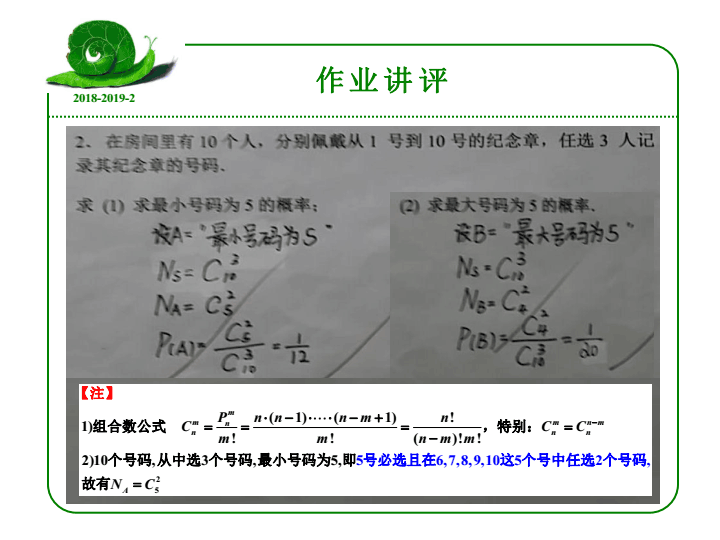 作业讲评
2018-2019-2
2. 在房间里有 10 个人，分别佩戴从 1 号到 10 号的纪念章，任选 3 人记
录其纪念章的号码.
求 (1) 求最小号码为 5 的概率;
设A=“最小号码为5”
N_S= C_{10}^{3}
N_A= C_5^2
P(A)= C_5^2 / C_{10}^3 = 1/12
(2) 求最大号码为 5 的概率.
设B=“最大号码为5”
N_S= C_{10}^3
N_B= C_4^2
P(B)= C_4^2 / C_{10}^3 = 1/20
【注】
1)组合数公式 C_n^m = P_n^m / m! = n·(n−1)·····(n−m+1) / m! = n! / (n−m)!m!，特别：C_n^m = C_n^{n−m}
2)10个号码,从中选3个号码,最小号码为5,即5号必选且在6,7,8,9,10这5个号中任选2个号码,
故有N_A = C_5^2